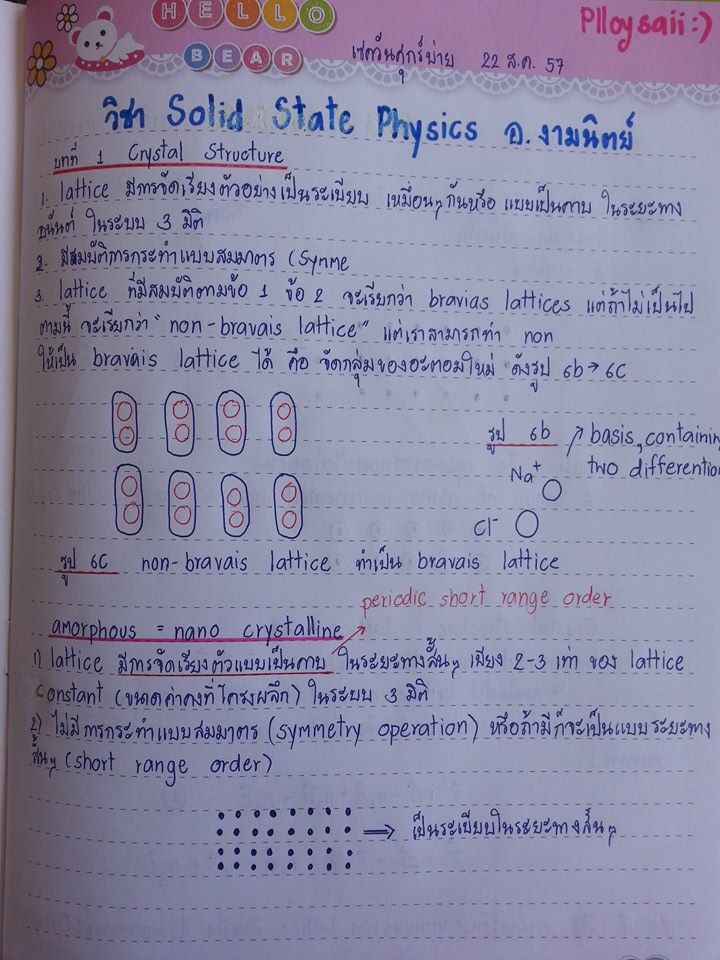 HELLO
BEAR
Plloysaii:)
เซควันศุกร์บ่าย 22 ส.ค. 57
วิชา Solid State Physics อ.งามนิตย์
บทที่ 1 Crystal Structure
1. lattice มีการจัดเรียงตัวอย่างเป็นระเบียบ เหมือนๆกันหรือ แบบเป็นคาบ ในระยะทาง
อนันต์ ในระบบ 3 มิติ
2. มีสมบัติการกระทำแบบสมมาตร (Symme
3. lattice ที่มีสมบัติตามข้อ 1 ข้อ 2 จะเรียกว่า bravias lattices แต่ถ้าไม่เป็นไป
ตามนี้ จะเรียกว่า "non-bravais lattice" แต่เราสามารถทำ non
ให้เป็น bravais lattice ได้ คือ จัดกลุ่มของอะตอมใหม่ ดังรูป 6b → 6C
รูป 6b ↗ basis, containin
two differention
Na+
Cl-
รูป 6C non-bravais lattice ทำเป็น bravais lattice
periodic short range order
amorphous = nano crystalline
1) lattice มีการจัดเรียงตัวแบบเป็นคาบ ในระยะทางสั้นๆ เพียง 2-3 เท่า ของ lattice
constant (ขนาดค่าคงที่โครงผลึก) ในระบบ 3 มิติ
2) ไม่มีการกระทำแบบสมมาตร (symmetry operation) หรือถ้ามีก็จะเป็นแบบระยะทาง
สั้นๆ (short range order)
⇒ เป็นระเบียบในระยะทางสั้นๆ